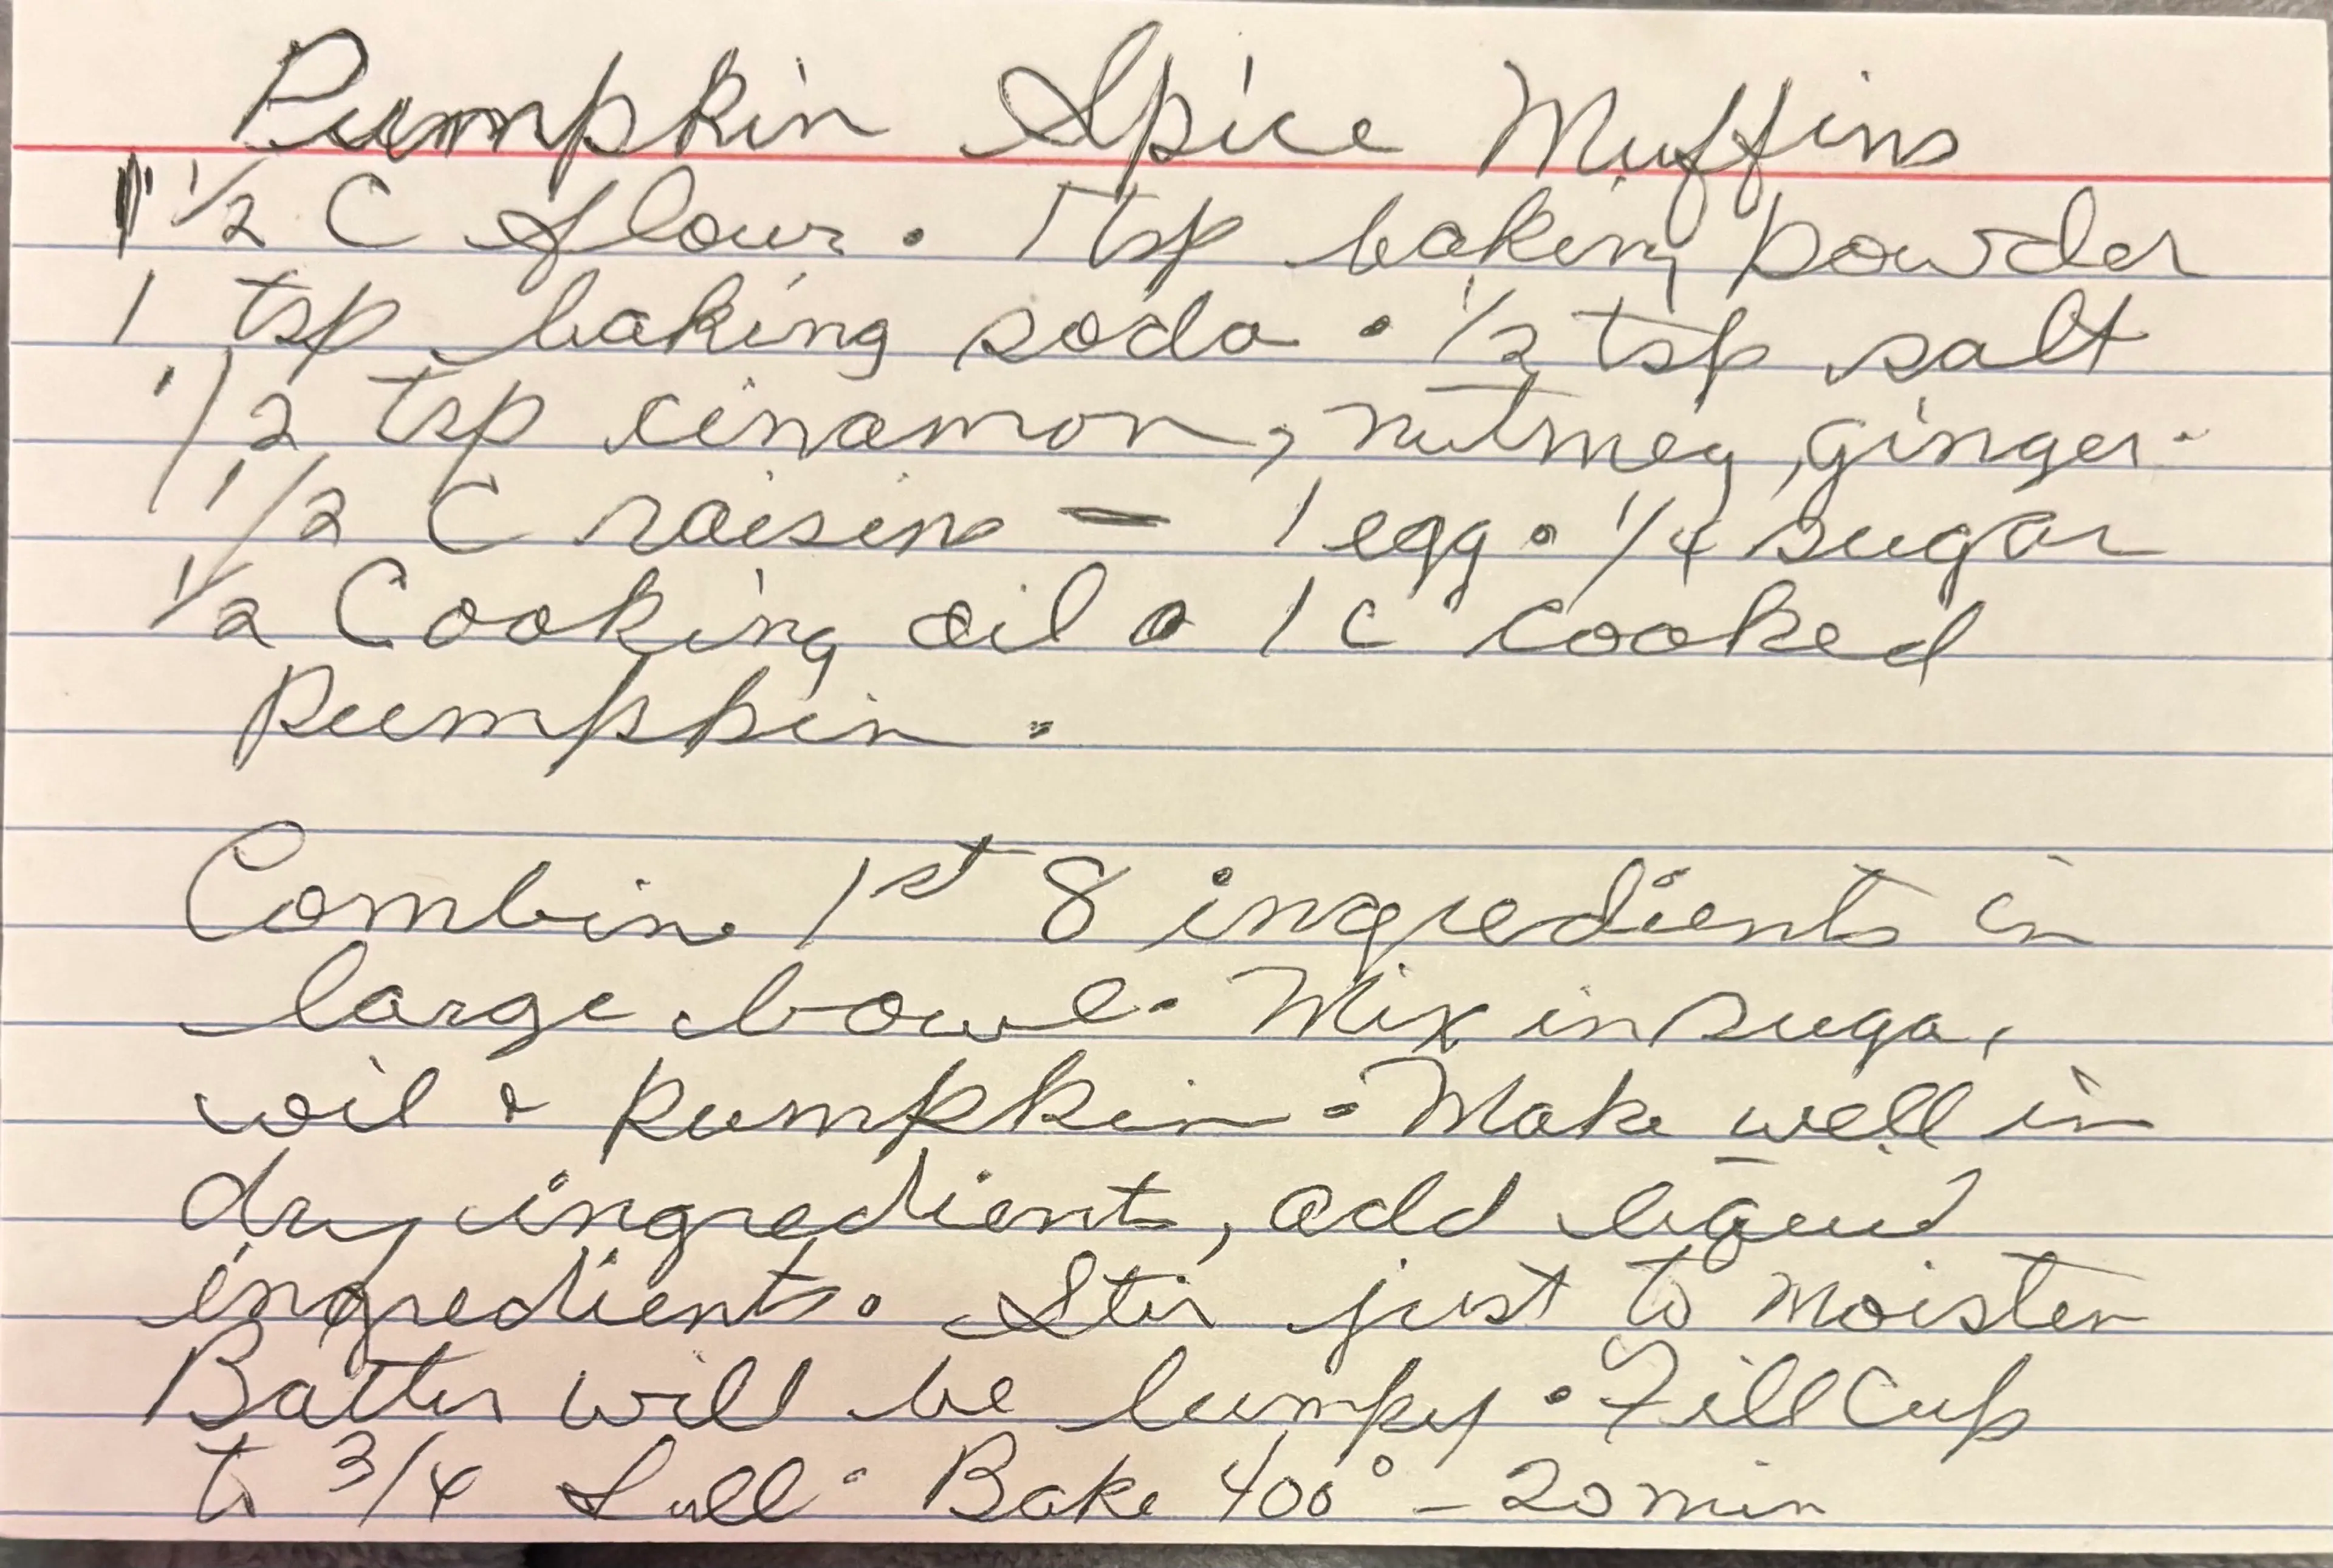 Pumpkin Spice Muffins
1 1/2 C flour • 1 tsp baking powder
1 tsp baking soda • 1/2 tsp salt
1/2 tsp cinamon, nutmeg, ginger.
1/2 C raisins — 1 egg • 1/4 sugar
1/2 Cooking oil • 1 c cooked
Pumpkin.
Combine 1st 8 ingredients in
large bowl. Mix in suga,
oil & Pumpkin. Make well in
dry ingredients, add liquid
ingredients. Stir just to moisten
Batter will be lumpy. Fill Cup
to 3/4 full. Bake 400° – 20 min